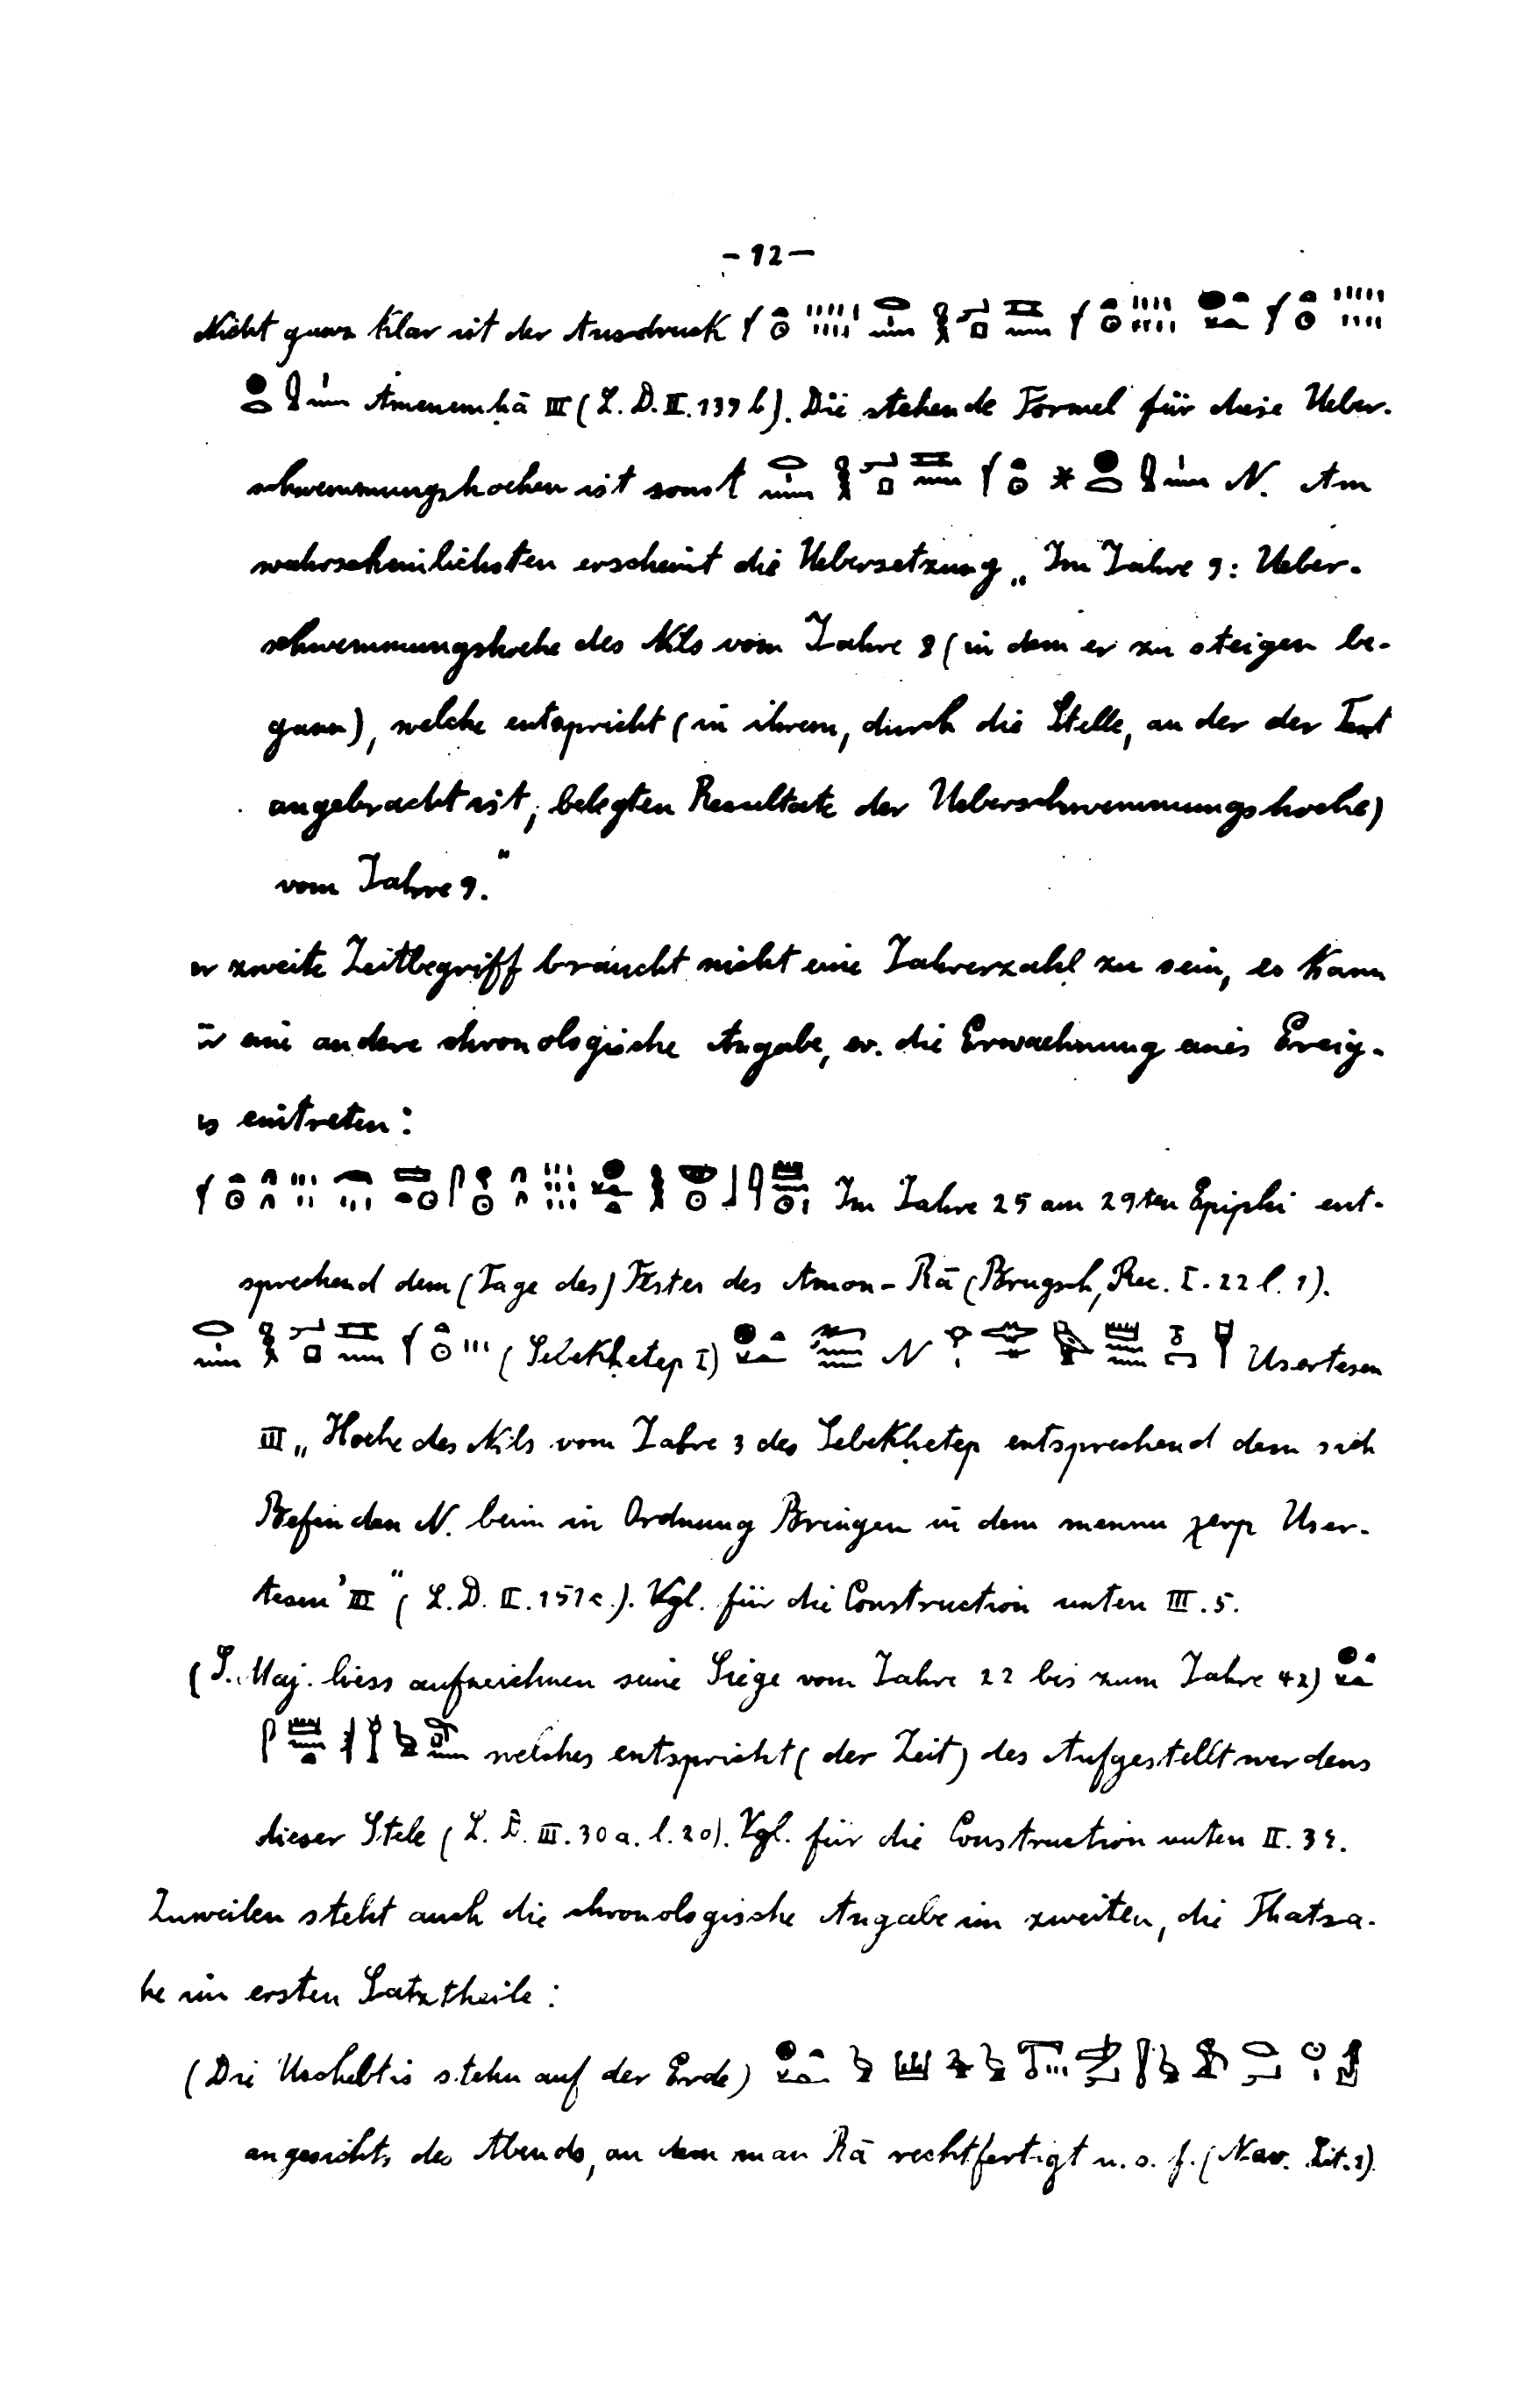 - 12 -
Nicht ganz klar ist der Ausdruck
Amenemḥā III (L. D. II. 139 b). Die stehende Formel für diese Ueber-
schwemmungshoehen ist sonst N. Am
wahrscheinlichsten erscheint die Uebersetzung „Im Jahre 9: Ueber-
schwemmungshoehe des Nils vom Jahre 8 (in dem er zu steigen be-
gann), welche entspricht (in ihrem, durch die Stelle, an der der Text
angebracht ist, belegten Resultate der Ueberschwemmungshoehe)
vom Jahre 9.“
zweite Zeitbegriff braucht nicht eine Jahreszahl zu sein, es kann
eine andere chronologische Angabe, ev. die Erwaehnung eines Ereig-
eintreten:
Im Jahre 25 am 29ten Epiphi ent-
sprechend dem (Tage des) Festes des Amon-Rā (Brugsch, Rec. I. 22 l. 1).
(Sebekḥetep I) N Usertesen
III „Hoehe des Nils vom Jahre 3 des Sebekḥetep entsprechend dem sich
Befinden N. beim in Ordnung Bringen in dem mennu χerp User-
tesen' III“ (L. D. II. 151 c.). Vgl. für die Construction unten III. 5.
(S. Maj. liess aufzeichnen seine Siege vom Jahre 22 bis zum Jahre 42)
welches entspricht (der Zeit) des Aufgestelltwerdens
dieser Stele (L. D. III. 30 a. l. 20). Vgl. für die Construction unten II.
Zuweilen steht auch die chronologische Angabe im zweiten, die Thatsa-
he im ersten Satztheile:
(Die Uschebtis stehn auf der Erde)
angesichts des Abends, an dem man Rā rechtfertigt u. s. f. (Nav. Lit.